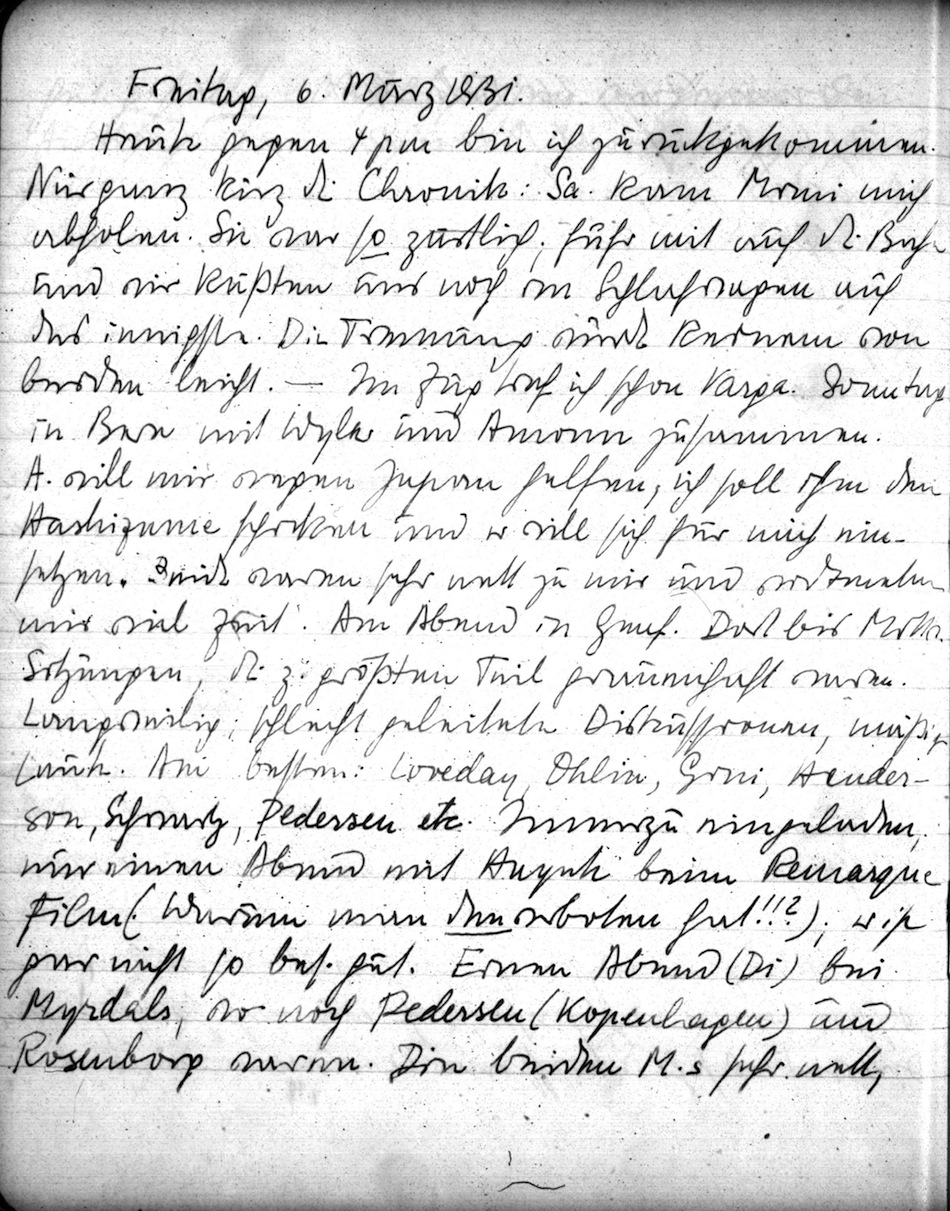 Freitag, 6. März 1931.
Heute gegen 4 pm bin ich zurückgekommen.
Nur ganz kurz die Chronik: Sa. kam Mimi mich
abholen. Sie war so zärtlich, fuhr mit auf die Bahn
und wir küßten uns noch im Schlafwagen auf
das innigste. Die Trennung wurde keinem von
beiden leicht. — Im Zug traf ich schon Varga. Sonntag
in Bern mit Wyler und Amonn zusammen.
A. will mir wegen Japan helfen, ich soll ihm den
Hashizume schicken und er will sich für mich ein-
setzen. Beide waren sehr nett zu mir und widmeten
mir viel Zeit. Am Abend in Genf. Dort bis Mittw.
Sitzungen, die z. größten Teil grauenhaft waren.
Langweilig, schlecht geleitete Diskussionen, mäßige
Leute. Am besten: Loveday, Ohlin, Gini, Hender-
son, Schwartz, Pedersen etc. Immerzu eingeladen,
nur einen Abend mit beim Remarque
Film (Warum man den verboten hat!!?); er ist
gar nicht so bes. gut. Einen Abend (Di) bei
Myrdals, wo noch Pedersen (Kopenhagen) und
Rosenborg waren. Die beiden M.s sehr nett,